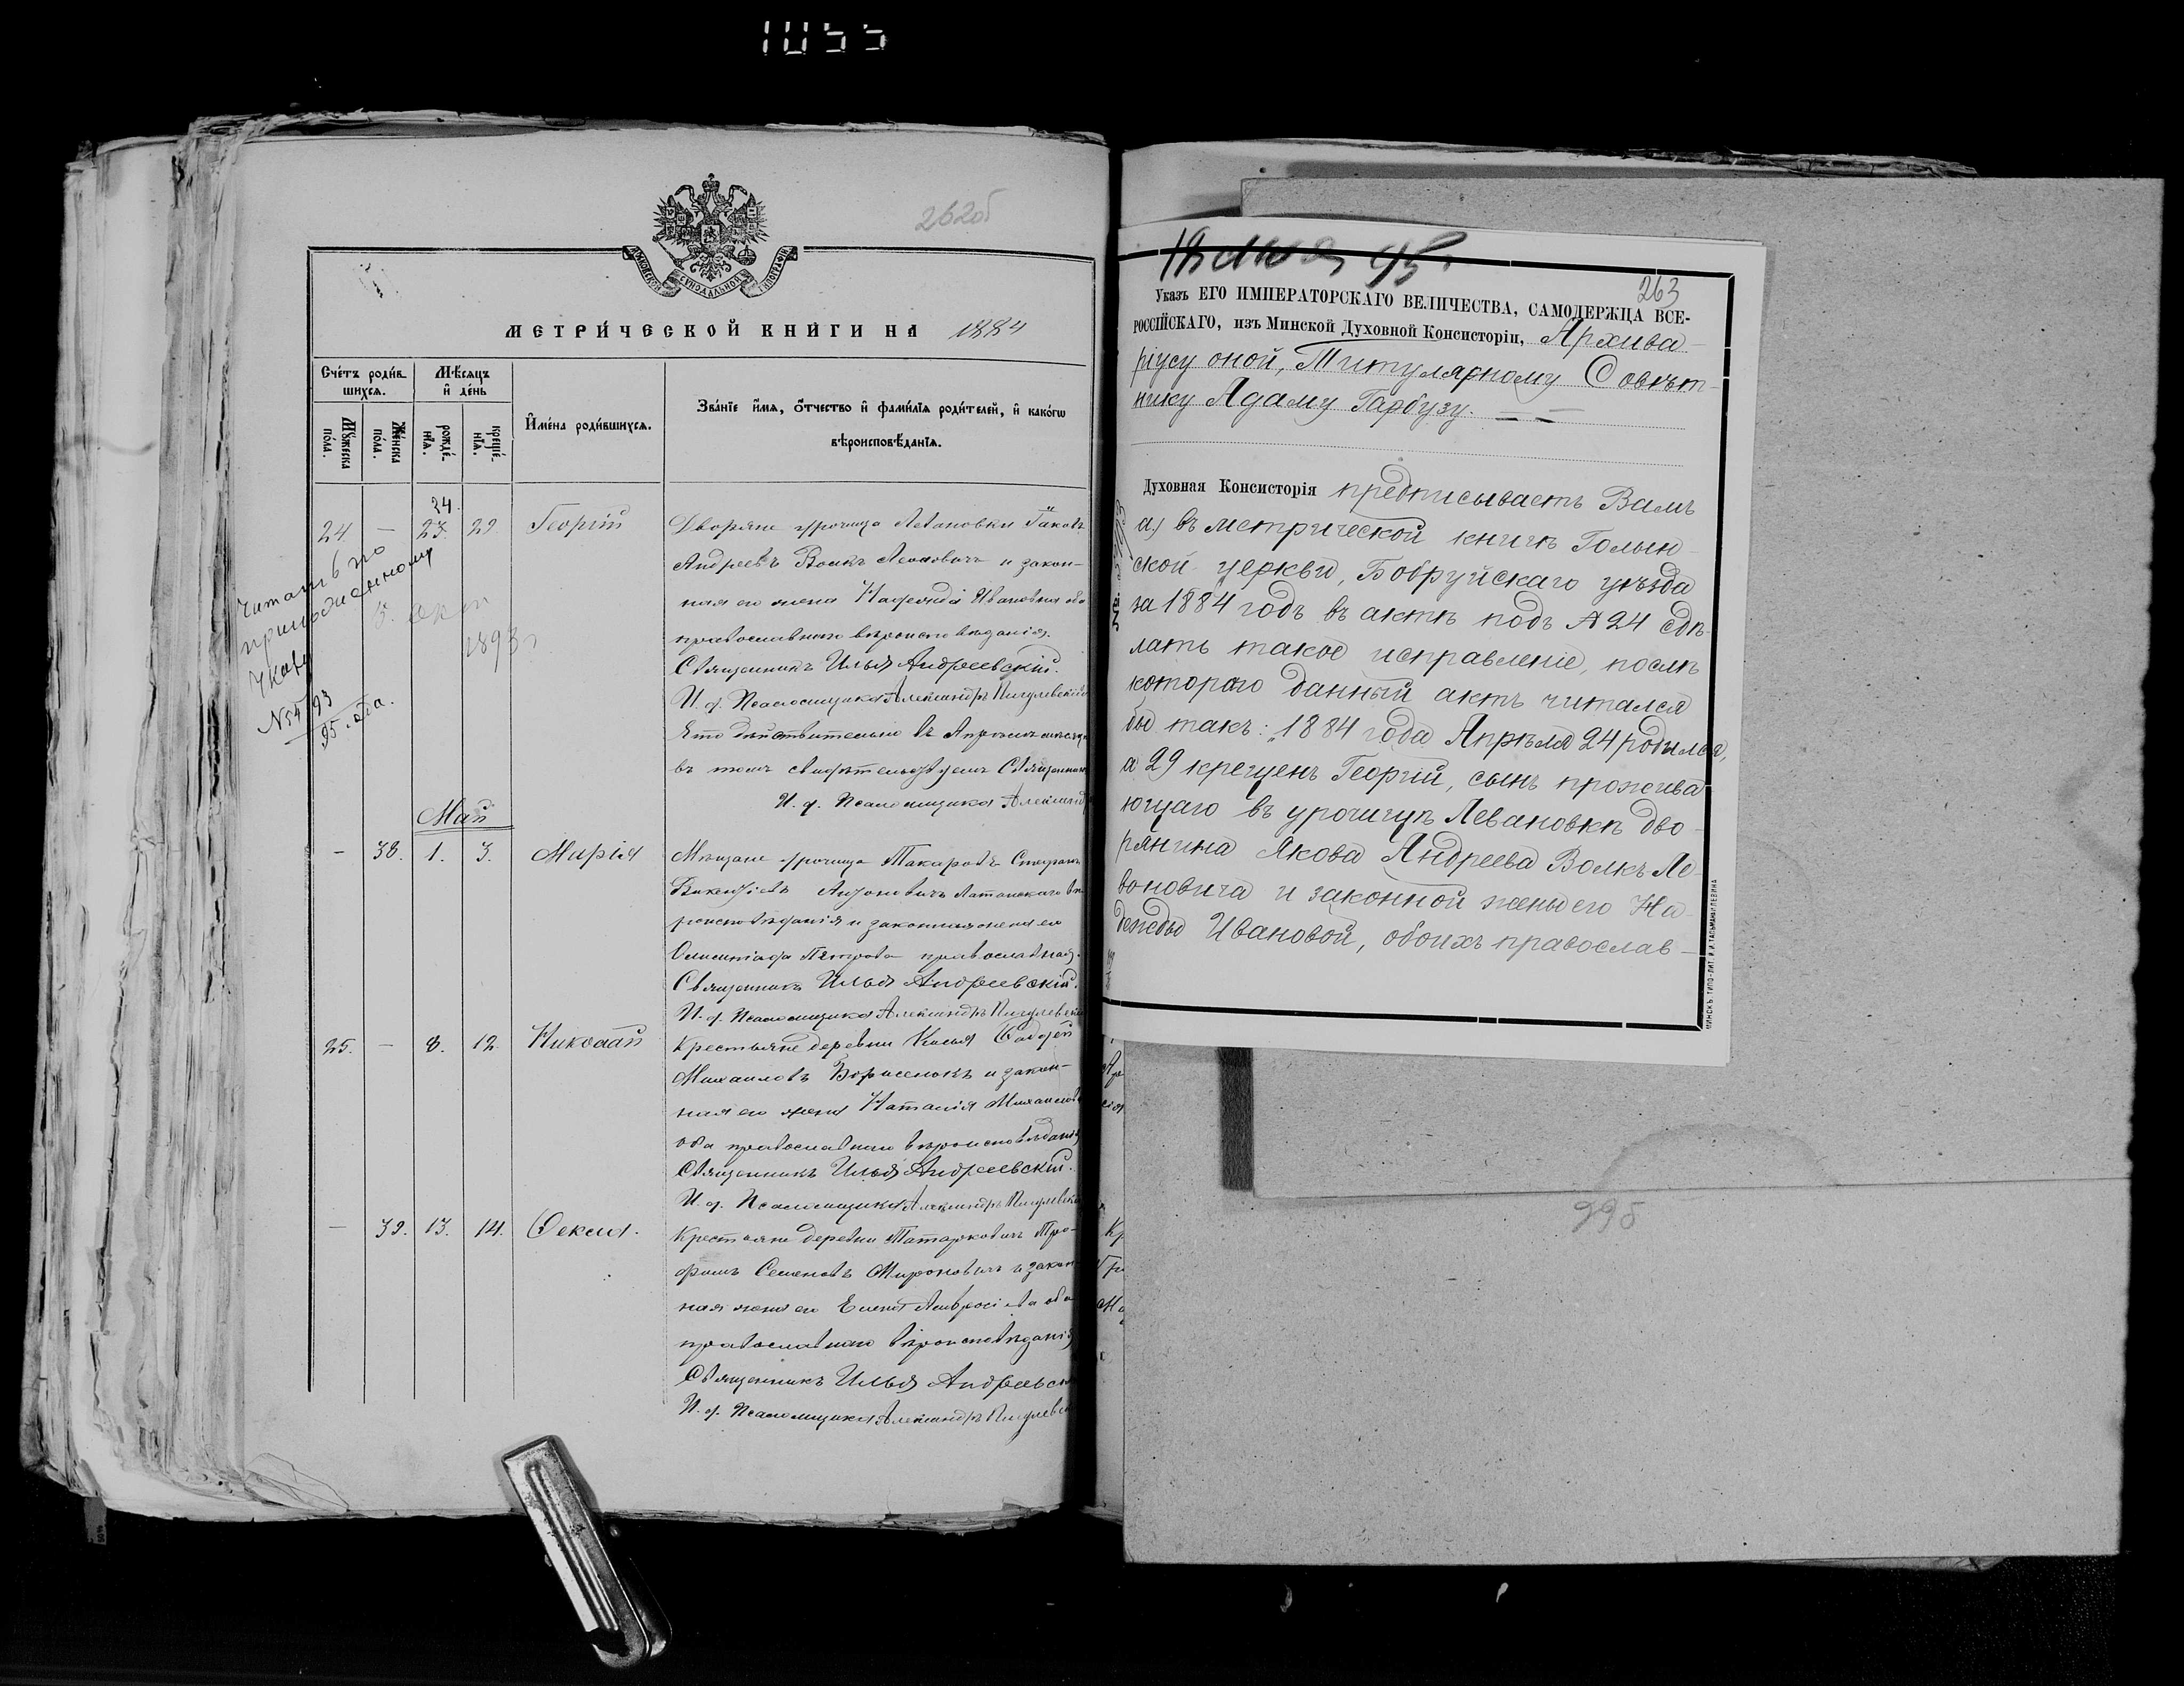 1055
262об
МОСКОВСКОЙ СѴНОДАЛЬНОЙ ТИПОГРАФІИ
МЕТРИ́ЧЕСКОЙ КНИ́ГИ НА 1884
Сче́тъ роди́в-
шихсѧ.
Мѣ́сѧцъ
и҆ де́нь
Мꙋ́жеска
по́ла.
Же́нска
по́ла.
рожде́-
нїѧ.
креще́-
нїѧ.
И҆мена̀ роди́вшихсѧ.
Зва́нїе и҆́мѧ, ѻ҆́тчество и҆ фами́лїѧ роди́телей, и҆ како́гѡ
вѣроисповѣ́данїѧ.
24.
24 — 23. 29. Георгій
Дворяне урочища Левановки Іаковъ
Андреевъ Волкъ Леоновичъ и закон-
ная его жена Надежда Ивановна оба
православнаго вѣроисповѣданія.
Священникъ Илья Андреевскій.
И. д. Псаломщика Александръ Пигулевскій
Что дѣйствительно въ Апрѣлѣ мѣсяцѣ
въ томъ свидѣтельствуемъ Священникъ
И. д. Псаломщика Александръ
Читать по
прилодженному
Указу
1893
№ 5493
95. ода.
Май
— 38. 1. 3. Марія
Мѣщане урочища Макаровъ Стефанъ
Викентіевъ Антоновичъ Латинскаго вѣ-
роисповѣданія и законная жена его
Олимпіада Петрова православная.
Священникъ Илья Андреевскій.
И. д. Псаломщика Александръ Пигулевскій
25. — 8. 12. Николай
Крестьяне деревни Фадей
Михаиловъ Борисенокъ и закон-
ная его жена Наталія Михаилова
оба православнаго вѣроисповѣданія
Священникъ Илья Андреевскій.
И. д. Псаломщика Александръ Пигулевскій
— 39. 13. 14. Фекла.
Крестьяне деревни Татарковичъ Тро-
фимъ Семеновъ Мироновичъ и закон-
ная жена его Елена Амвросіева оба
православнаго вѣроисповѣданія
Священникъ Илья Андреевскій
И. д. Псаломщика Александръ Пигулевскій
263
Указъ ЕГО ИМПЕРАТОРСКАГО ВЕЛИЧЕСТВА, САМОДЕРЖЦА ВСЕ-
РОССІЙСКАГО, изъ Минской Духовной Консисторіи, Архива-
ріусу оной, Титулярному Совѣт-
нику Адаму Гарбузу.
Духовная Консисторія предписываетъ Вамъ
а) въ метрической книгѣ Голын-
ской церкви, Бобруйскаго уѣзда
за 1884 годъ въ актѣ подъ № 24 сдѣ-
лать такое исправленіе, послѣ
котораго данный актъ читался
бы такъ: „1884 года Апрѣля 24 родился,
а 29 крещенъ Георгій, сынъ прожива-
ющаго въ урочищѣ Левановкѣ дво-
рянина Якова Андреева Волкъ-Ле-
воновича и законной жены его На-
дежды Ивановой, обоихъ православ-
МИНСКЪ ТИПО-ЛИТ. И. И ТАСЬМАНА ЛЕВИНА
295